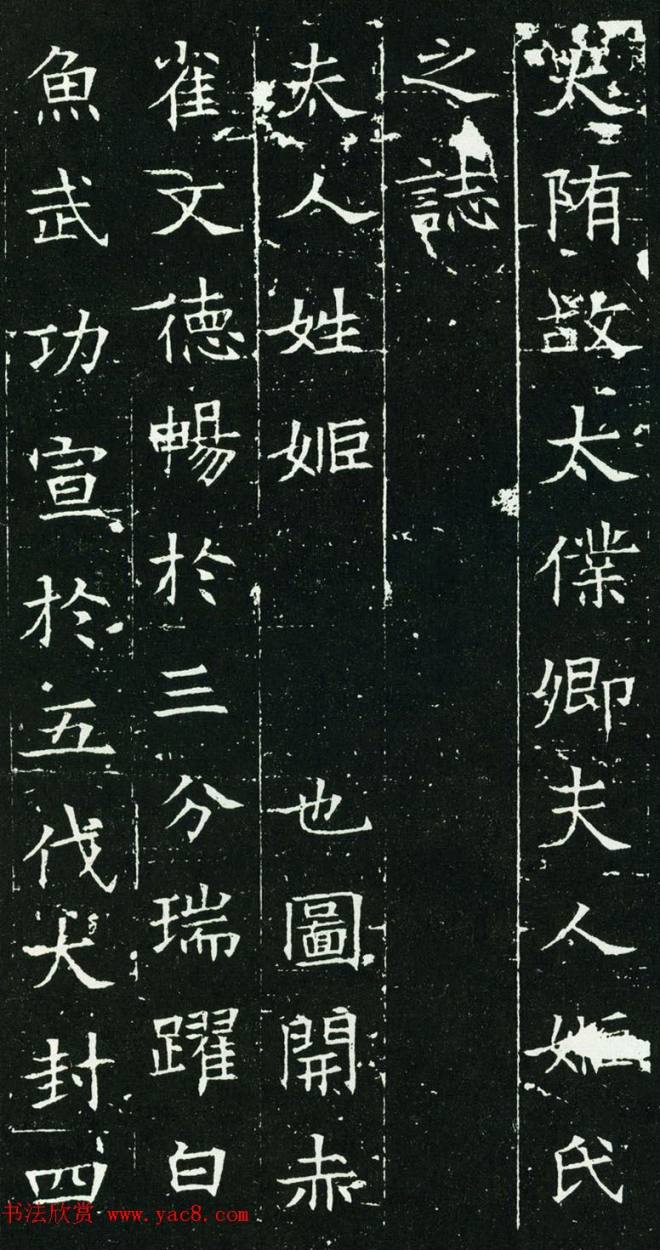 大隋故太僕卿夫人姬氏
之誌
夫人姓姬也圖開赤
雀文德暢於三分瑞躍白
魚武功宣於五伐大封四
书法欣赏 www.yac8.com